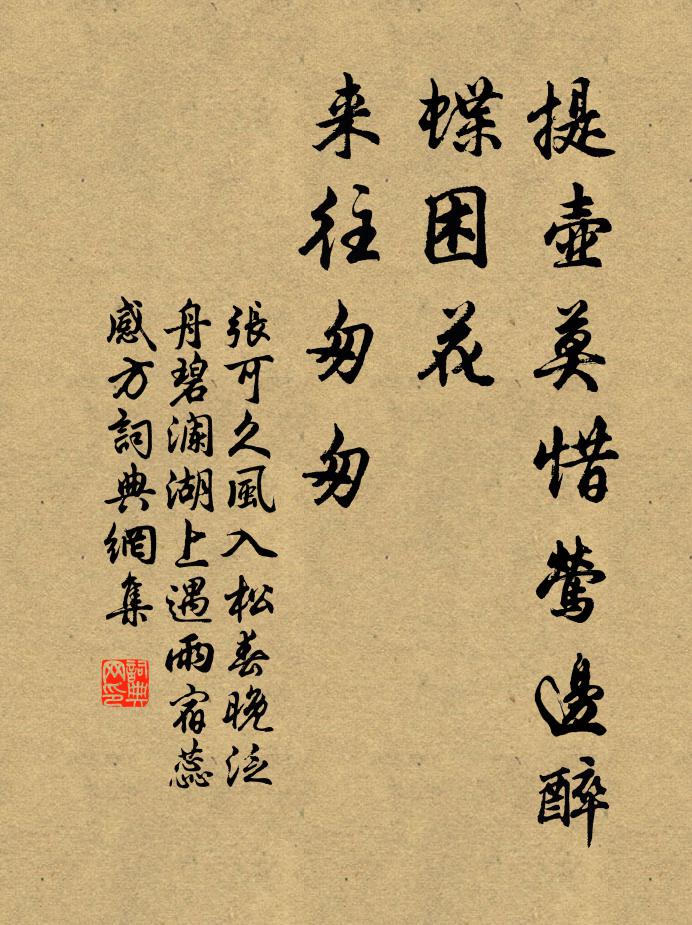 提壺莫惜鶯邊醉
蝶困花
来往匆匆
張可久風入松春晚泛
舟碧瀾湖上遇雨宿蕊
感方詞典網集
詞典网印